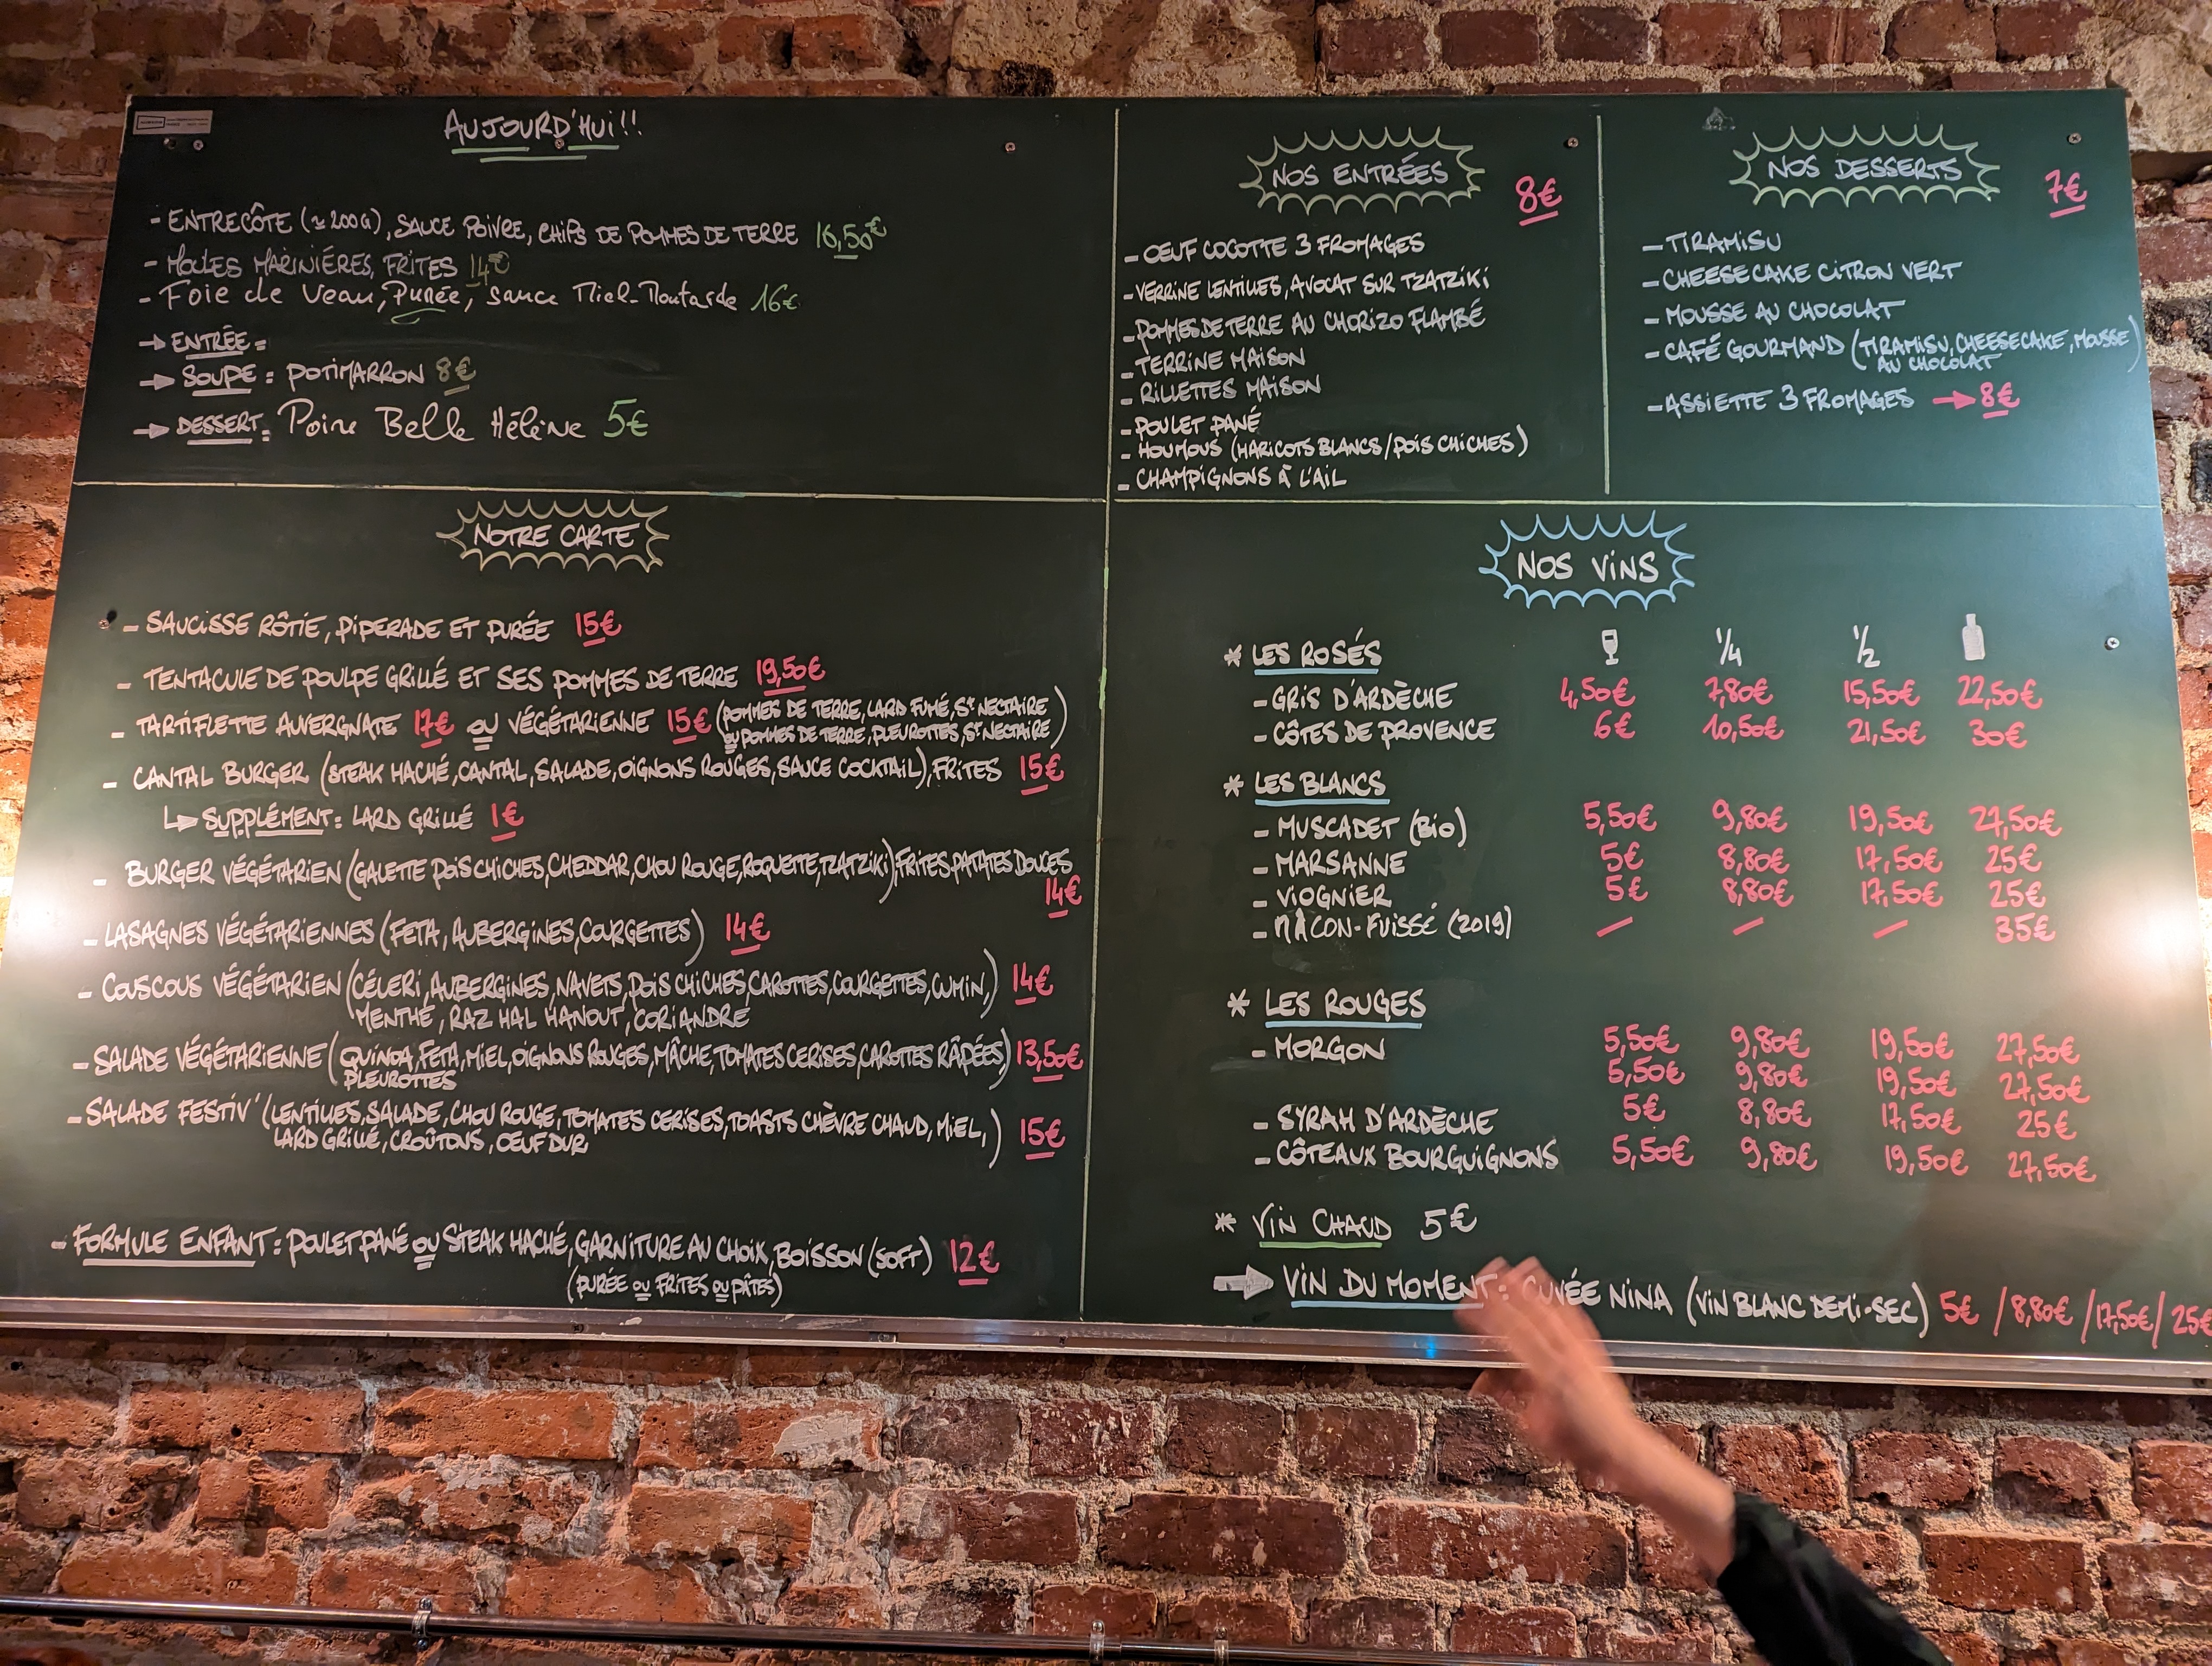 AUJOURD'HUI!!
- ENTRECÔTE (≃ 200G), SAUCE POIVRE, CHIPS DE POMMES DE TERRE 16,50€
- MOULES MARINIÉRES, FRITES 14€
- Foie de Veau, Purée, sauce Miel-Moutarde 16€
→ ENTRÉE =
→ SOUPE = POTIMARRON 8€
→ DESSERT = Poire Belle Hélène 5€
NOS ENTRÉES 8€
- OEUF COCOTTE 3 FROMAGES
- VERRINE LENTILLES, AVOCAT SUR TZATZIKI
- POMMES DE TERRE AU CHORIZO FLAMBÉ
- TERRINE MAISON
- RILLETTES MAISON
- POULET PANÉ
- HOUMOUS (HARICOTS BLANCS/POIS CHICHES)
- CHAMPIGNONS À L'AIL
NOS DESSERTS 7€
- TIRAMISU
- CHEESECAKE CITRON VERT
- MOUSSE AU CHOCOLAT
- CAFÉ GOURMAND (TIRAMISU, CHEESECAKE, MOUSSE
AU CHOCOLAT)
- ASSIETTE 3 FROMAGES → 8€
NOTRE CARTE
- SAUCISSE RÔTIE, PIPERADE ET PURÉE 15€
- TENTACULE DE POULPE GRILLÉ ET SES POMMES DE TERRE 19,50€
- TARTIFLETTE AUVERGNATE 17€ OU VÉGÉTARIENNE 15€ (POMMES DE TERRE, LARD FUMÉ, St NECTAIRE
OU POMMES DE TERRE, PLEUROTTES, St NECTAIRE)
- CANTAL BURGER (STEAK HACHÉ, CANTAL, SALADE, OIGNONS ROUGES, SAUCE COCKTAIL), FRITES 15€
↳ SUPPLÉMENT = LARD GRILLÉ 1€
- BURGER VÉGÉTARIEN (GALETTE POIS CHICHES, CHEDDAR, CHOU ROUGE, ROQUETTE, TZATZIKI), FRITES PATATES DOUCES
14€
- LASAGNES VÉGÉTARIENNES (FETA, AUBERGINES, COURGETTES) 14€
- COUSCOUS VÉGÉTARIEN (CÉLERI, AUBERGINES, NAVETS, POIS CHICHES, CAROTTES, COURGETTES, CUMIN,) 14€
MENTHE, RAZ HAL HANOUT, CORIANDRE
- SALADE VÉGÉTARIENNE (QUINOA, FETA, MIEL, OIGNONS ROUGES, MÂCHE, TOMATES CERISES, CAROTTES RÂPÉES,) 13,50€
PLEUROTTES
- SALADE FESTIV' (LENTILLES, SALADE, CHOU ROUGE, TOMATES CERISES, TOASTS CHÈVRE CHAUD, MIEL,) 15€
LARD GRILLÉ, CROÛTONS, OEUF DUR
- FORMULE ENFANT : POULET PANÉ OU STEAK HACHÉ, GARNITURE AU CHOIX, BOISSON (SOFT) 12€
(PURÉE OU FRITES OU PÂTES)
NOS VINS
* LES ROSÉS 1/4 1/2
- GRIS D'ARDÈCHE 4,50€ 7,80€ 15,50€ 22,50€
- CÔTES DE PROVENCE 6€ 10,50€ 21,50€ 30€
* LES BLANCS
- MUSCADET (BIO) 5,50€ 9,80€ 19,50€ 27,50€
- MARSANNE 5€ 8,80€ 17,50€ 25€
- VIOGNIER 5€ 8,80€ 17,50€ 25€
- MÂCON-FUISSÉ (2019) / / / 35€
* LES ROUGES
- MORGON 5,50€ 9,80€ 19,50€ 27,50€
5,50€ 9,80€ 19,50€ 27,50€
- SYRAH D'ARDÈCHE 5€ 8,80€ 17,50€ 25€
- CÔTEAUX BOURGUIGNONS 5,50€ 9,80€ 19,50€ 27,50€
* VIN CHAUD 5€
→ VIN DU MOMENT : CUVÉE NINA (VIN BLANC DEMI-SEC) 5€ / 8,80€ / 17,50€ / 25€